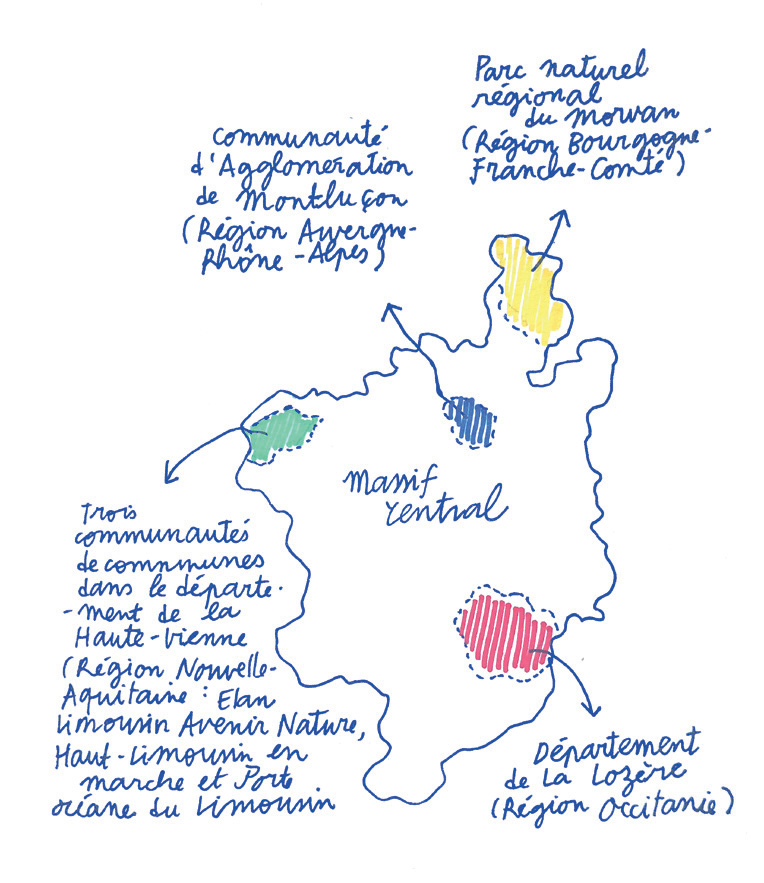 Parc naturel
régional
du Morvan
(Région Bourgogne-
Franche-Comté)
Communauté
d'Agglomération
de Montluçon
(Région Auvergne-
Rhône-Alpes)
Massif
Central
Trois
communautés
de communes
dans le départe-
-ment de la
Haute-Vienne
(Région Nouvelle-
Aquitaine : Elan
Limousin Avenir Nature,
Haut-Limousin en
marche et Porte
océane du Limousin
Département
de La Lozère
(Région Occitanie)